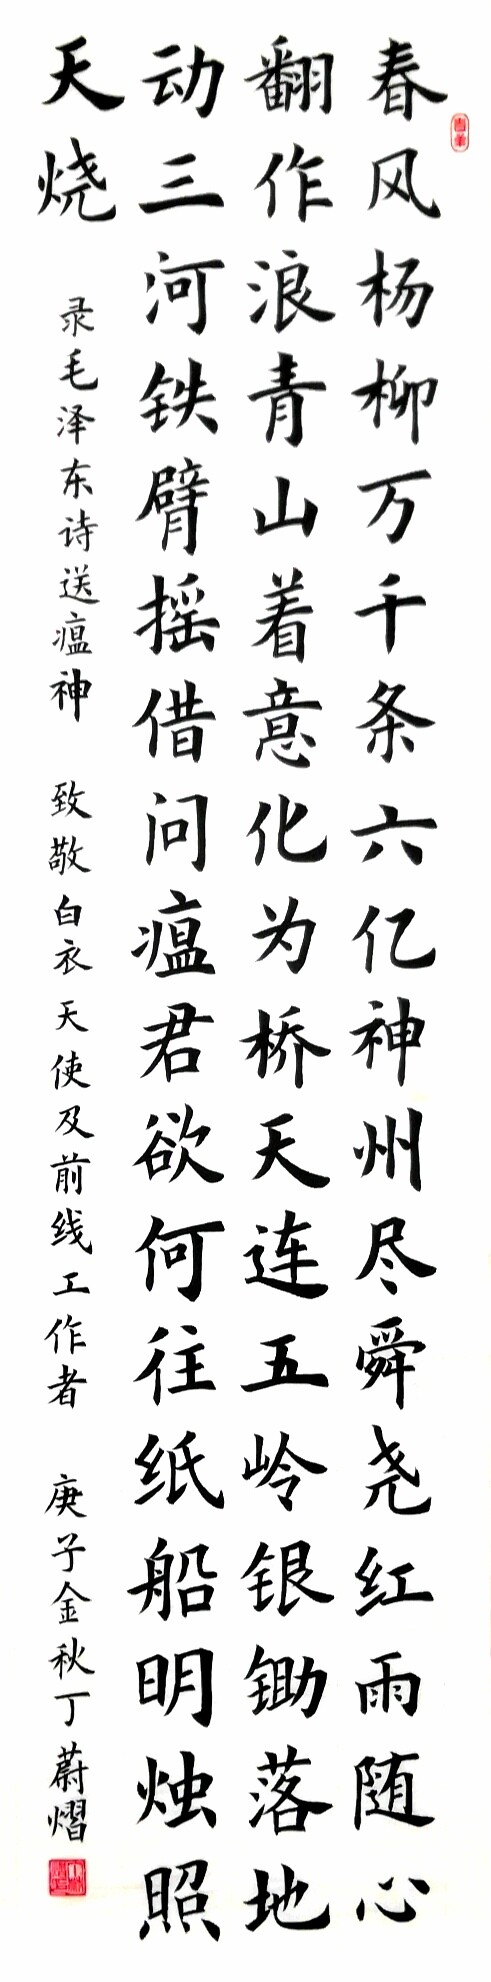 春风杨柳万千条六亿神州尽舜尧红雨随心
翻作浪青山着意化为桥天连五岭银锄落地
动三河铁臂摇借问瘟君欲何往纸船明烛照
天烧
录毛泽东诗送瘟神 致敬白衣天使及前线工作者 庚子金秋丁蔚熠